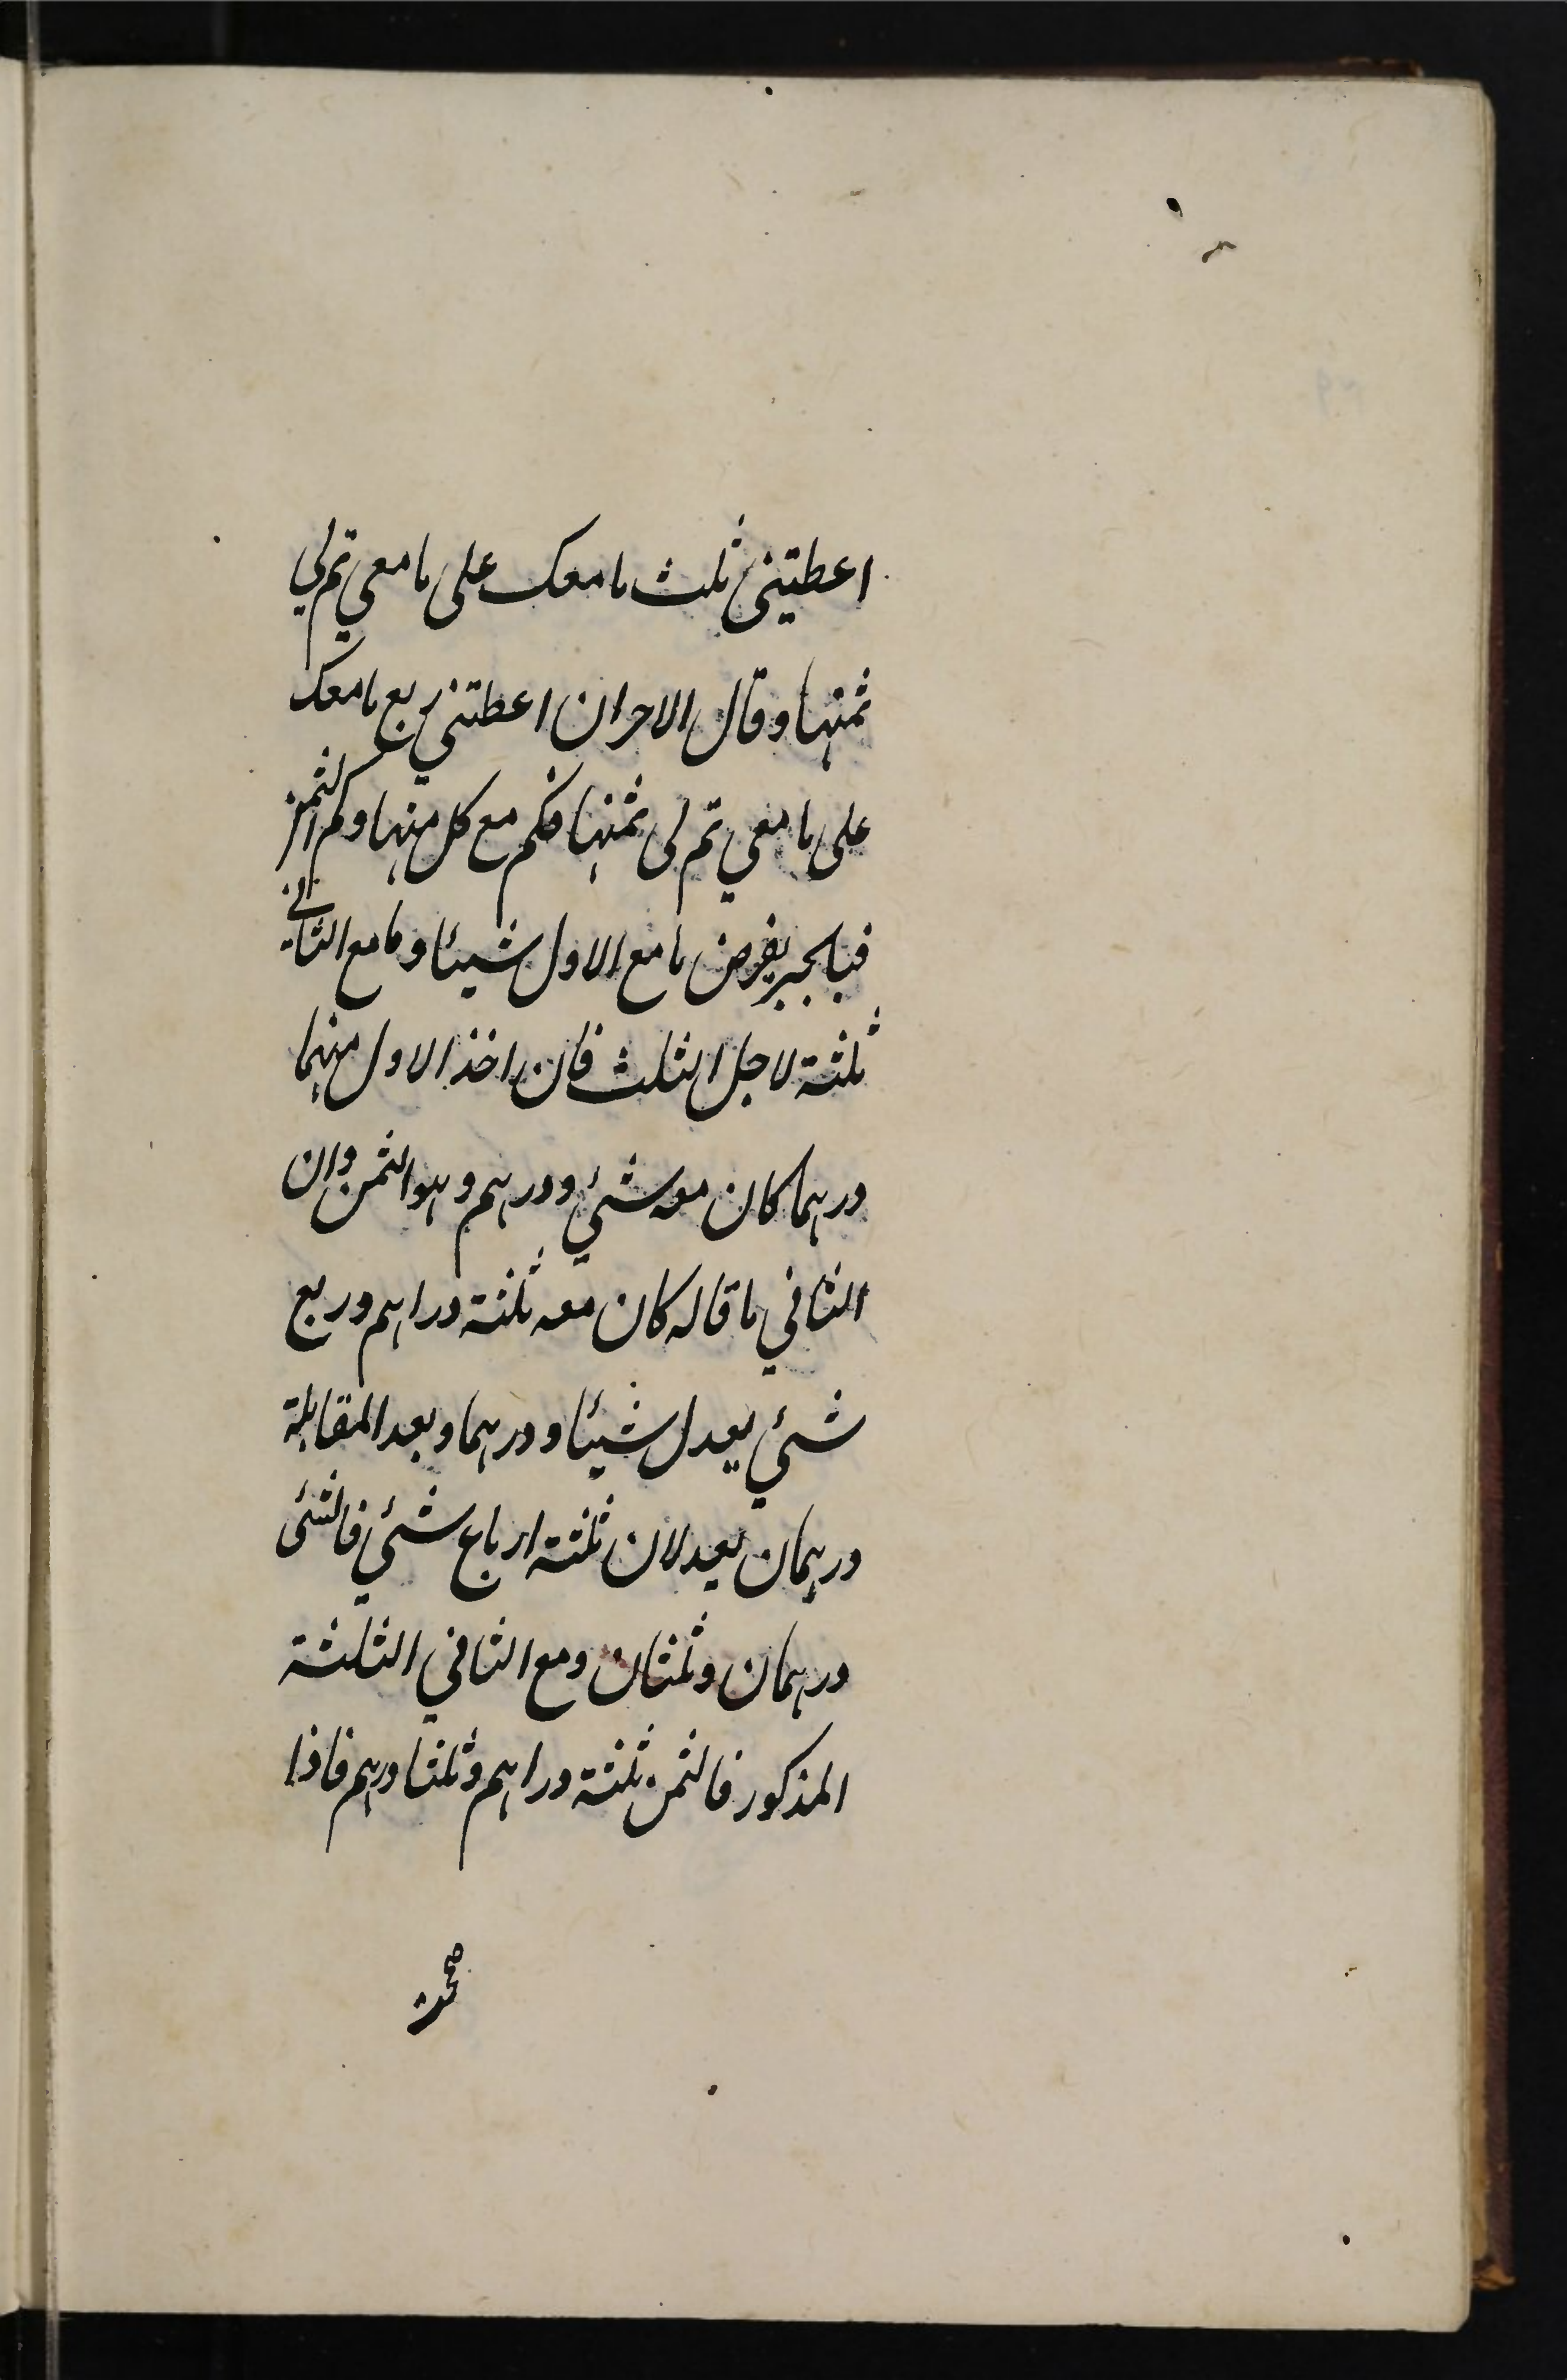 اعطيتنى ثلث ما معك على ما معي تم لي
ثمنها وقال الاخر ان اعطتني ربع ما معك
على ما معي تم لى ثمنها فكم مع كل منهما وكم الثمن
فبالجبر يفرض ما مع الاول شيئا وما مع الثاني
ثلثة لاجل الثلث فان اخذ الاول منهما
درهما كان معه شئي ودرهم وهو الثمن وان
الثاني ما قاله كان معه ثلثة دراهم وربع
شئي يعدل شيئا ودرهما وبعد المقابلة
درهمان يعدلان ثلثة ارباع شئي فالشئى
درهمان وثلثان ومع الثاني الثلثة
المذكور فالثمن ثلثة دراهم وثلثا درهم فاذا